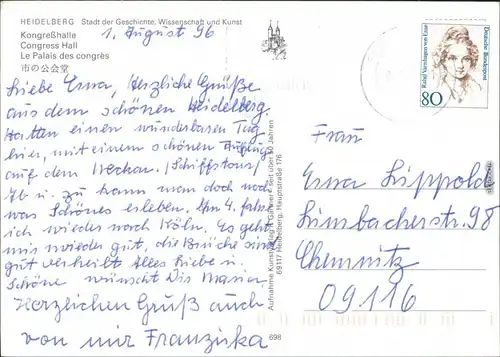 HEIDELBERG Stadt der Geschichte, Wissenschaft und Kunst
Kongreßhalle
Congress Hall
Le Palais des congrès
市の公会堂
1. August 96
Liebe Erna, Herzliche Grüße
aus dem schönen Heidelberg
Hatten einen wunderbaren Tag
hier, mit einem schönen Ausflug
auf dem Neckar. (Schiffstour)
Ab u. zu kann man doch noch
was Schönes erleben. Am 4. fahre
ich wieder nach Köln. Es geht
mir wieder gut, die Brüche sind
gut verheilt Alles Liebe u.
Schöne wünscht Dir Maria.
Herzlichen Gruß auch
von mir Franziska
Aufnahme Kunstverlag Edm. Seit über 50 Jahren
69117 Heidelberg, Hauptstraße 176
698
Rahel Varnhagen von Ense
Deutsche Bundespost
80
Frau
Erna Lippold
Limbacherstr. 98
Chemnitz
09116